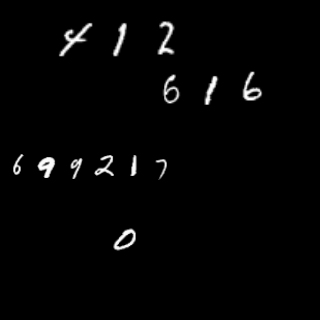 4 1 2
6 1 6
6 9 9 2 1 7
0